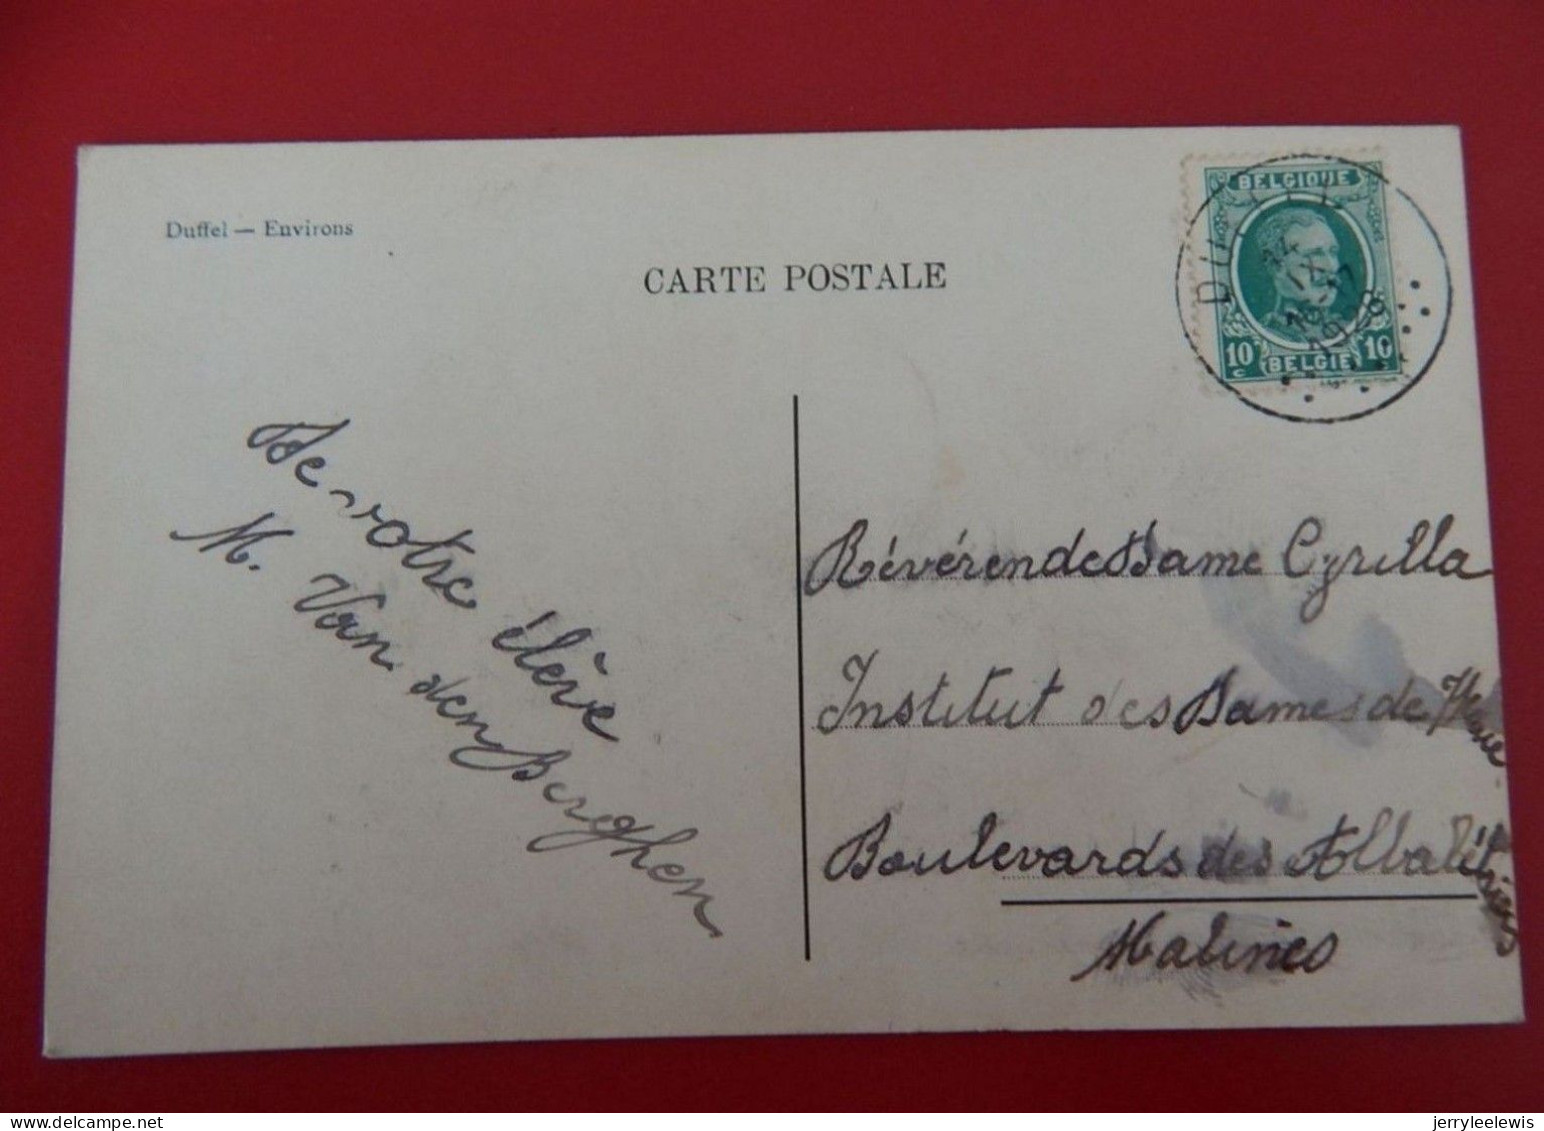 Duffel — Environs
CARTE POSTALE
BELGIQUE
10 c 10
BELGIË
DUFFEL
De votre élève
M. Van den Berghen
Révérende Dame Cyrilla
Institut des Dames de Marie
Boulevards des
Malines
delcampe.net
jerryleelewis